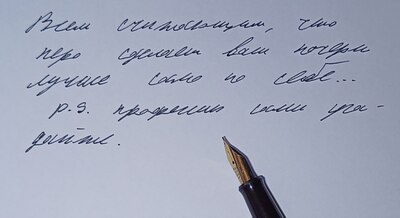 Всем считающим, что
перо сделает ваш почерк
лучше само по себе...
P.S. профессию сами уга-
дайте.